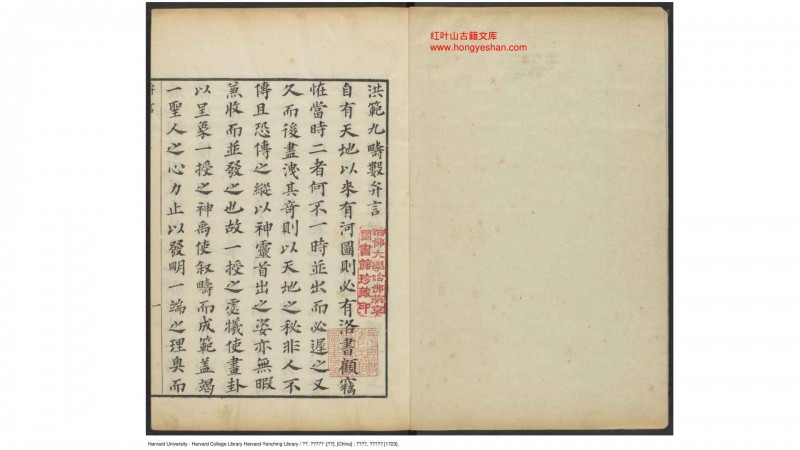 红叶山古籍文库
www.hongyeshan.com
洪範九疇數弁言
自有天地以來有河圖則必有洛書顧竊
怪當時二者何不一時並出而必遲之又
久而後盡洩其奇則以天地之秘非人不
傳且恐傳之縱以神靈首出之姿亦無暇
兼收而並發之也故一授之宓犧使畫卦
以呈象一授之神禹使叙疇而成範蓋竭
一聖人之心力止以發明一端之理奥而
一
哈佛大學哈佛燕京
圖書館珍藏印
Harvard University - Harvard College Library Harvard-Yenching Library / ??. ????? :[??]. [China] : ????, ????? [1723].